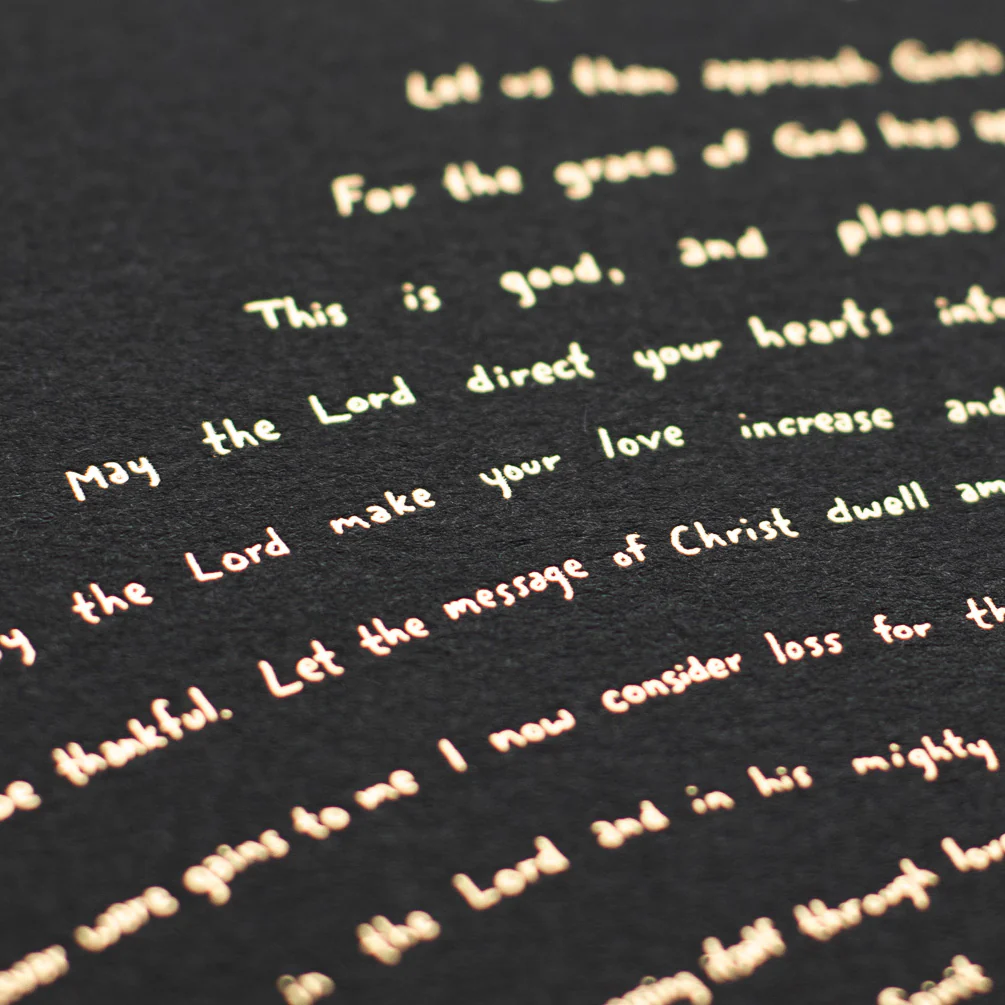 Let us then approach God's
For the grace of God has
This is good, and pleases
May the Lord direct your hearts into
the Lord make your love increase and
be thankful. Let the message of Christ dwell
were gains to me I now consider loss for
in the Lord and in his mighty
through